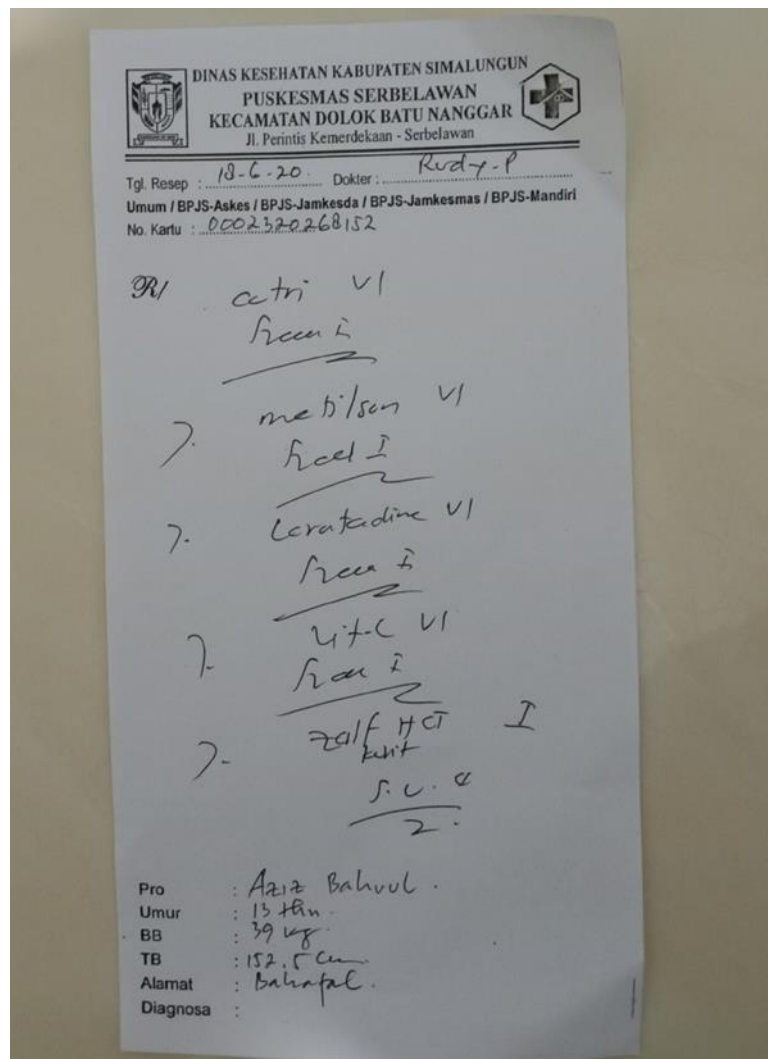 DINAS KESEHATAN KABUPATEN SIMALUNGUN
PUSKESMAS SERBELAWAN
KECAMATAN DOLOK BATU NANGGAR
Jl. Perintis Kemerdekaan - Serbelawan
Tgl. Resep : 18-6-20. Dokter : Rudy-P
Umum / BPJS-Askes / BPJS-Jamkesda / BPJS-Jamkesmas / BPJS-Mandiri
No. Kartu : 0002320268152
R/ VI
VI
I
Loratadine VI
I
Vit-C VI
I
zalf HCT I
kulit
Pro : Aziz Bahrul.
Umur : 13 thn.
BB : 39 kg.
TB : 152,5 Cm
Alamat :
Diagnosa :